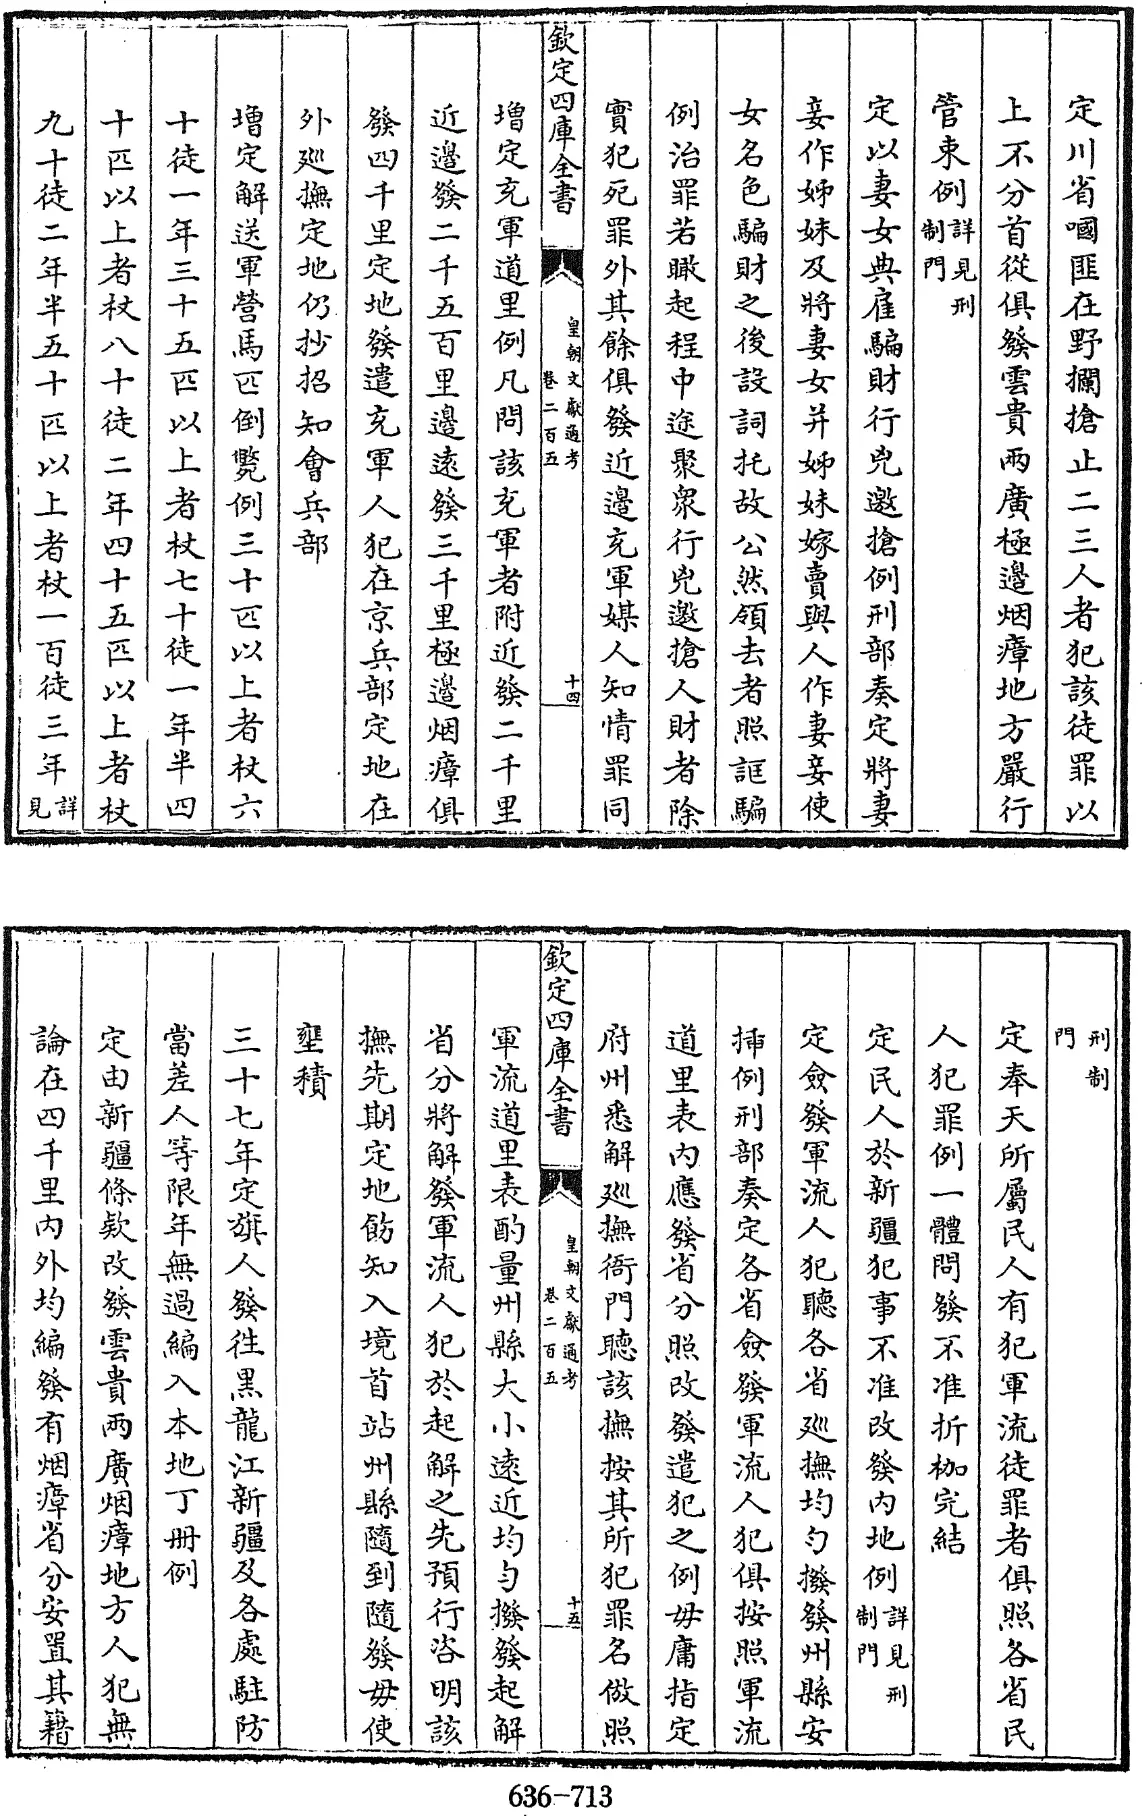 定川省嘓匪在野攔搶止二三人者犯該徒罪以
上不分首從俱發雲貴兩廣極邊烟瘴地方嚴行
管束例詳見刑制門
定以妻女典雇騙財行兇邀搶例刑部奏定將妻
妾作姊妹及將妻女并姊妹嫁賣與人作妻妾使
女名色騙財之後設詞托故公然領去者照誆騙
例治罪若瞰起程中途聚衆行兇邀搶人財者除
實犯死罪外其餘俱發近邊充軍媒人知情罪同
欽定四庫全書
皇朝文獻通考
卷二百五
十四
增定充軍道里例凡問該充軍者附近發二千里
近邊發二千五百里邊遠發三千里極邊烟瘴俱
發四千里定地發遣充軍人犯在京兵部定地在
外廵撫定地仍抄招知會兵部
增定解送軍營馬匹倒斃例三十匹以上者杖六
十徒一年三十五匹以上者杖七十徒一年半四
十匹以上者杖八十徒二年四十五匹以上者杖
九十徒二年半五十匹以上者杖一百徒三年詳見
刑制門
定奉天所屬民人有犯軍流徒罪者俱照各省民
人犯罪例一體問發不准折枷完結
定民人於新疆犯事不准改發内地例詳見刑制門
定僉發軍流人犯聽各省廵撫均勻撥發州縣安
揷例刑部奏定各省僉發軍流人犯俱按照軍流
道里表内應發省分照改發遣犯之例毋庸指定
府州悉解廵撫衙門聽該撫按其所犯罪名倣照
欽定四庫全書
皇朝文獻通考
卷二百五
十五
軍流道里表酌量州縣大小遠近均勻撥發起解
省分將解發軍流人犯於起解之先預行咨明該
撫先期定地飭知入境首站州縣隨到隨發毋使
壅積
三十七年定旗人發往黑龍江新疆及各處駐防
當差人等限年無過編入本地丁册例
定由新疆條欵改發雲貴兩廣烟瘴地方人犯無
論在四千里内外均編發有烟瘴省分安置其籍
636-713